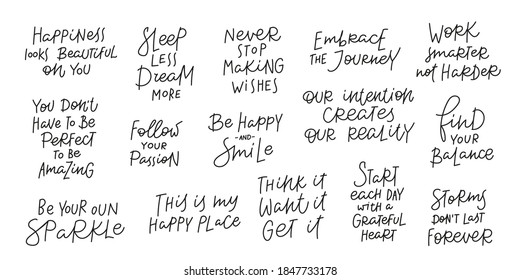 Happiness
looks Beautiful
on you
Sleep
Less
Dream
More
Never
Stop
Making
Wishes
Embrace
the Journey
Work
smarter
not Harder
You Don't
Have to Be
Perfect
to Be
Amazing
Follow
your
Passion
Be Happy
-and-
Smile
our intention
Creates
our Reality
find
your
Balance
Be your oun
Sparkle
This is my
Happy Place
Think it
Want it
Get it
Start
each Day
with a
Grateful
Heart
Storms
Don't Last
Forever
shutterstock.com · 1847733178